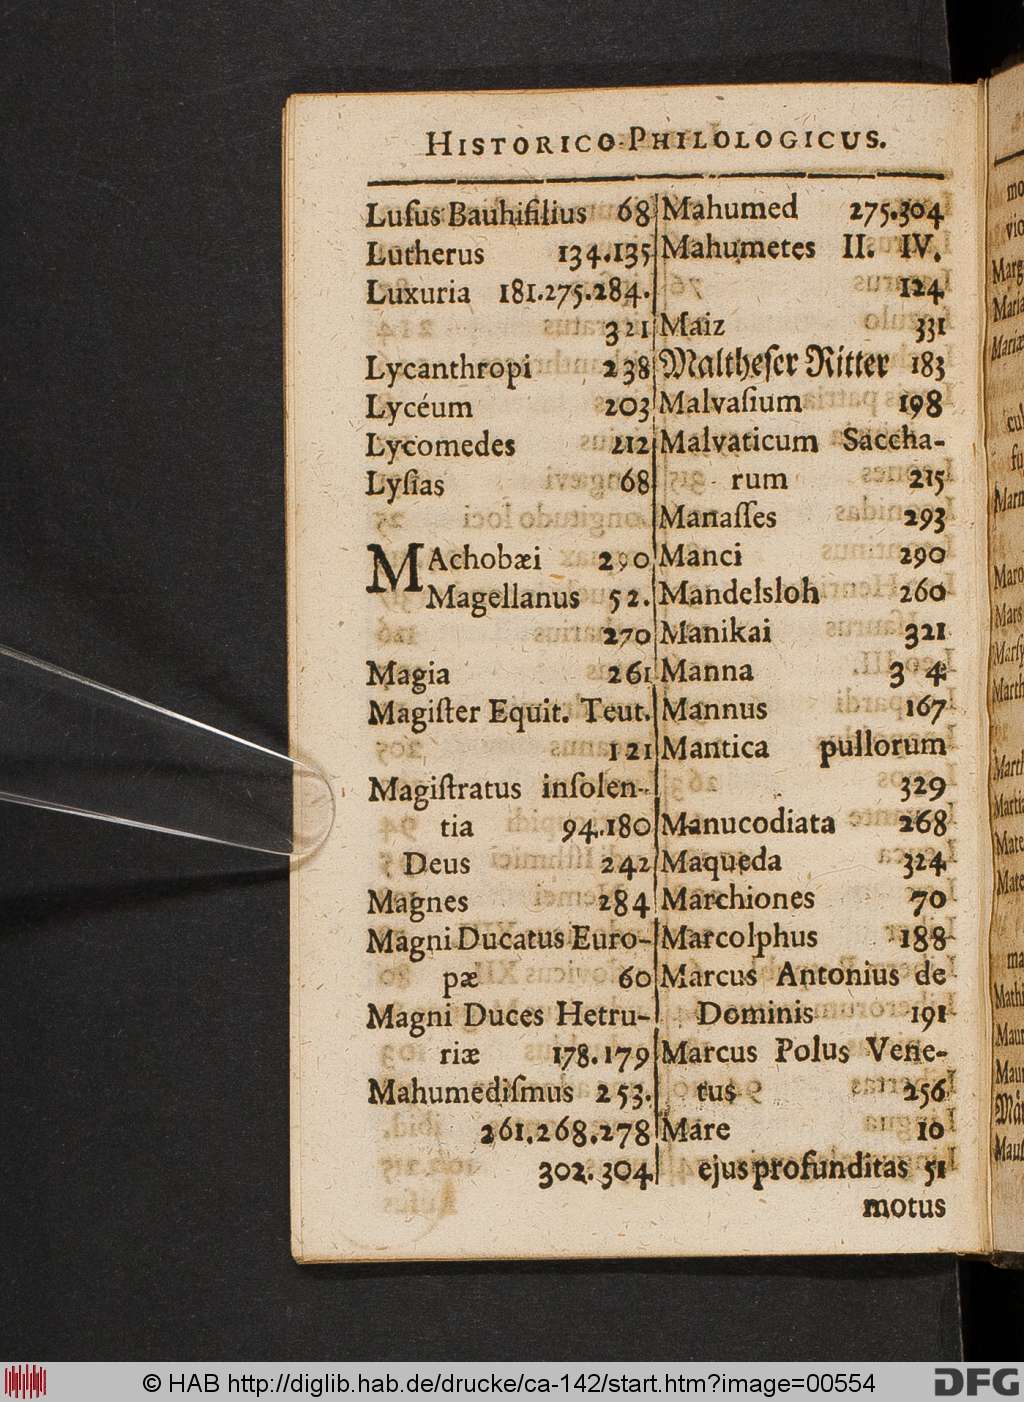 HISTORICO-PHILOLOGICUS.
Luſus Bauhiſilius 68
Lutherus 134.135
Luxuria 181.275.284.
321
Lycanthropi 238
Lycéum 203
Lycomedes 212
Lyſias 68
MAchobæi 290
Magellanus 52.
270
Magia 261
Magiſter Equit. Teut.
121
Magiſtratus inſolen-
tia 94.180
Deus 242
Magnes 284
Magni Ducatus Euro-
pæ 60
Magni Duces Hetru-
riæ 178.179
Mahumediſmus 253.
261.268.278
302.304
Mahumed 275.304
Mahumetes II. IV.
124
Maiz 331
Maltheſer Ritter 183
Malvaſium 198
Malvaticum Saccha-
rum 215
Manaſſes 293
Manci 290
Mandelsloh 260
Manikai 321
Manna 3 4
Mannus 167
Mantica pullorum
329
Manucodiata 268
Maqueda 324
Marchiones 70
Marcolphus 188
Marcus Antonius de
Dominis 191
Marcus Polus Vene-
tus 256
Mare 10
ejus profunditas 51
motus
© HAB http://diglib.hab.de/drucke/ca-142/start.htm?image=00554
DFG